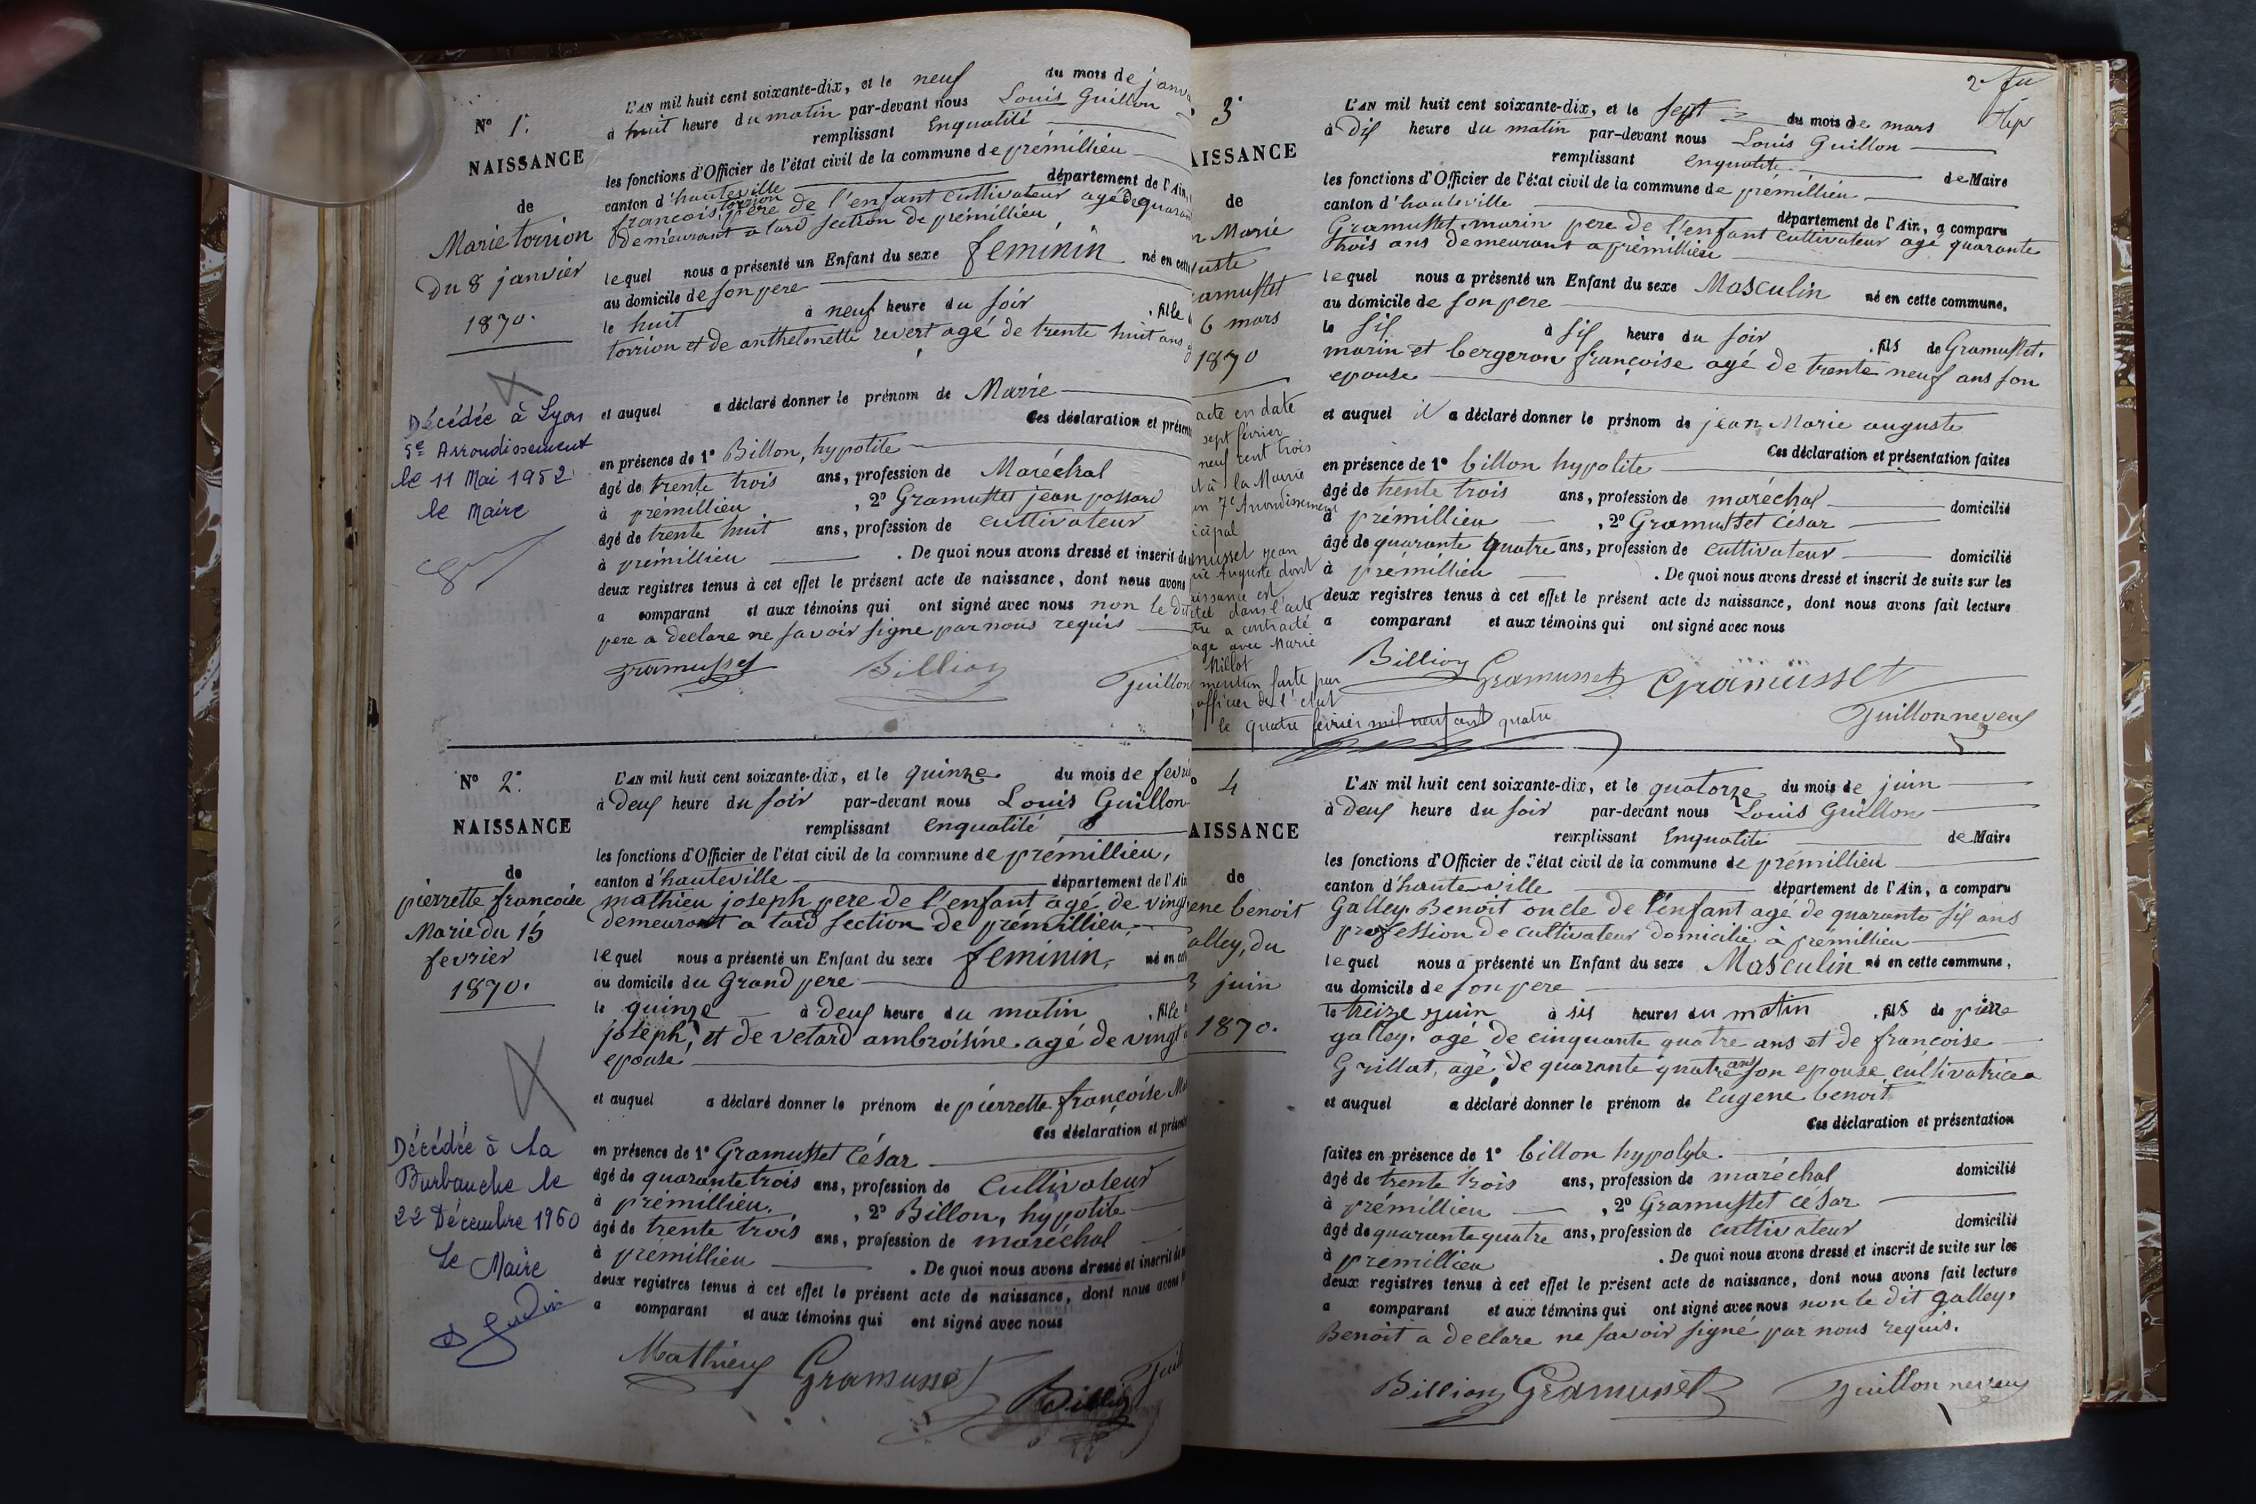 Nº 1.
NAISSANCE
de
Marie torrion
Du 8 janvier
1870.
Décédée à Lyon
5e Arrondissement
le 11 Mai 1952
le Maire
L'AN mil huit cent soixante-dix, et le neuf du mois de janv
à huit heure du matin par-devant nous Louis Guillon
remplissant Enqualité
les fonctions d'Officier de l'état civil de la commune de prémillieu
canton d'hauteville département de l'Ain,
francois torrion père de l'enfant cultivateur agé de quaran
Demeurant a tard section de prémillieu
lequel nous a présenté un Enfant du sexe feminin né en cett
au domicile de son pere
le huit à neuf heure du soir , fille
torrion et de anthelmette revert agé de trente huit ans
et auquel a déclaré donner le prénom de Marie
Ces déclaration et présen
en présence de 1º Billon, hypolite
âgé de trente trois ans, profession de Maréchal
à prémillieu , 2º Gramusset jean
âgé de trente huit ans, profession de cultivateur
à prémillieu . De quoi nous avons dressé et inscrit de
deux registres tenus à cet effet le présent acte de naissance, dont nous avons
a comparant et aux témoins qui ont signé avec nous non le dit
pere a declare ne savoir signe par nous requis
Gramusset Billion Guillon
Nº 2.
NAISSANCE
de
pierrette francoise
Marie du 15
fevrier
1870.
Décédée à La
Burbanche le
22 Décembre 1960
Le Maire
L'AN mil huit cent soixante-dix, et le quinze du mois de fevri
à Deux heure du soir par-devant nous Louis Guillon
remplissant Enqualité
les fonctions d'Officier de l'état civil de la commune de prémillieu,
canton d'hauteville département de l'Ain
mathieu joseph pere de l'enfant agé de ving
demeurant a tard section de prémillieu
lequel nous a présenté un Enfant du sexe feminin, né en cet
au domicile du Grand pere
le quinze à deux heure du matin , fille
joseph, et de vetard ambroisine agé de vingt
epouse
et auquel a déclaré donner le prénom de pierrette françoise Ma
Ces déclaration et présen
en présence de 1º Gramusset César
âgé de quarante trois ans, profession de Cultivateur
à prémillieu, , 2º Billon, hypolite
âgé de trente trois ans, profession de maréchal
à prémillieu . De quoi nous avons dressé et inscrit de
deux registres tenus à cet effet le présent acte de naissance, dont nous avons
a comparant et aux témoins qui ont signé avec nous
Mathieu Gramusset Billion Guil
2e fu
3.
AISSANCE
de
n Marie
uste
amusset
6 mars
1870
acte en date
sept février
neuf cent trois
à la Mairie
7e Arrondissement
icipal
musset jean
ie Auguste dont
aissance est
dans l'acte
tre a contracté
age avec Marie
Millot
mention faite par
officier de l'état
le quatre février mil neuf cent quatre
L'AN mil huit cent soixante-dix, et le sept du mois de mars
à Dix heure du matin par-devant nous Louis Guillon
remplissant enqualité de Maire
les fonctions d'Officier de l'état civil de la commune de prémillieu
canton d'hauteville département de l'Ain, a comparu
Gramusset marin pere de l'enfant cultivateur agé quarante
trois ans demeurant a prémillieu
lequel nous a présenté un Enfant du sexe Masculin né en cette commune,
au domicile de son pere
le six à six heure du soir , fils de Gramusset.
marin et bergeron françoise agé de trente neuf ans son
epouse
et auquel il a déclaré donner le prénom de jean Marie auguste
Ces déclaration et présentation faites
en présence de 1º billon hypolite
âgé de trente trois ans, profession de maréchal domicilié
à prémillieu , 2º Gramusset César
âgé de quarante quatre ans, profession de cultivateur domicilié
à prémillieu . De quoi nous avons dressé et inscrit de suite sur les
deux registres tenus à cet effet le présent acte de naissance, dont nous avons fait lecture
a comparant et aux témoins qui ont signé avec nous
Billion Gramusset Gramusset
Guillon neveu
4
AISSANCE
de
ene benoit
alley, du
3 juin
1870.
L'AN mil huit cent soixante-dix, et le quatorze du mois de juin
à Deux heure du soir par-devant nous Louis Guillon
remplissant Enqualité de Maire
les fonctions d'Officier de l'état civil de la commune de prémillieu
canton d'hauteville département de l'Ain, a comparu
Galley Benoit oncle de l'enfant agé de quarante six ans
profession de cultivateur domicilié à prémillieu
lequel nous a présenté un Enfant du sexe Masculin né en cette commune,
au domicile de son pere
le treize juin à six heures du matin , fils de pierre
galley. agé de cinquante quatre ans et de francoise
Grillat, agé de quarante quatre ans son epouse cultivatrice
et auquel a déclaré donner le prénom de Eugene benoit
Ces déclaration et présentation
faites en présence de 1º billon hypolyte.
âgé de trente trois ans, profession de maréchal domicilié
à prémillieu , 2º Gramusset césar
âgé de quarante quatre ans, profession de cultivateur domicilié
à prémillieu . De quoi nous avons dressé et inscrit de suite sur les
deux registres tenus à cet effet le présent acte de naissance, dont nous avons fait lecture
a comparant et aux témoins qui ont signé avec nous non le dit galley,
Benoit a declare ne savoir signé par nous requis.
Billion Gramusset Guillon neveu